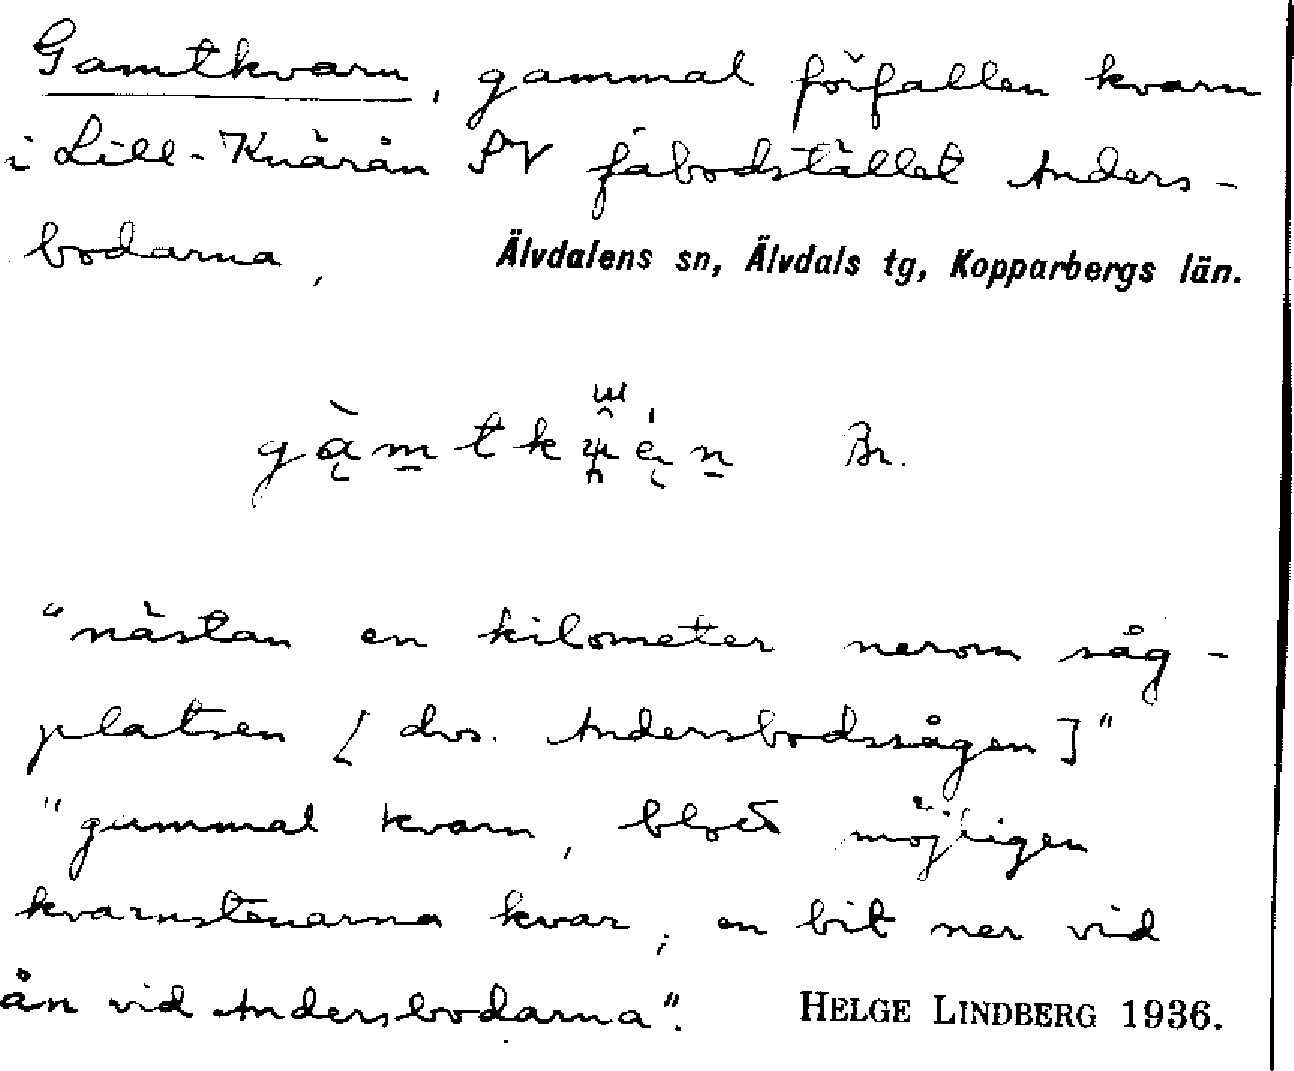 Gamtkvarn, gammal förfallen kvarn
i Lill-Knärån SV fäbodstället Anders-
bodarna, Älvdalens sn, Älvdals tg, Kopparbergs län.
Br.
"nästan en kilometer nerom såg-
platsen [dvs. Andersbodssågen]"
"gammal kvarn, blott möjligen
kvarnstenarna kvar, en bit ner vid
ån vid Andersbodarna".
HELGE LINDBERG 1936.